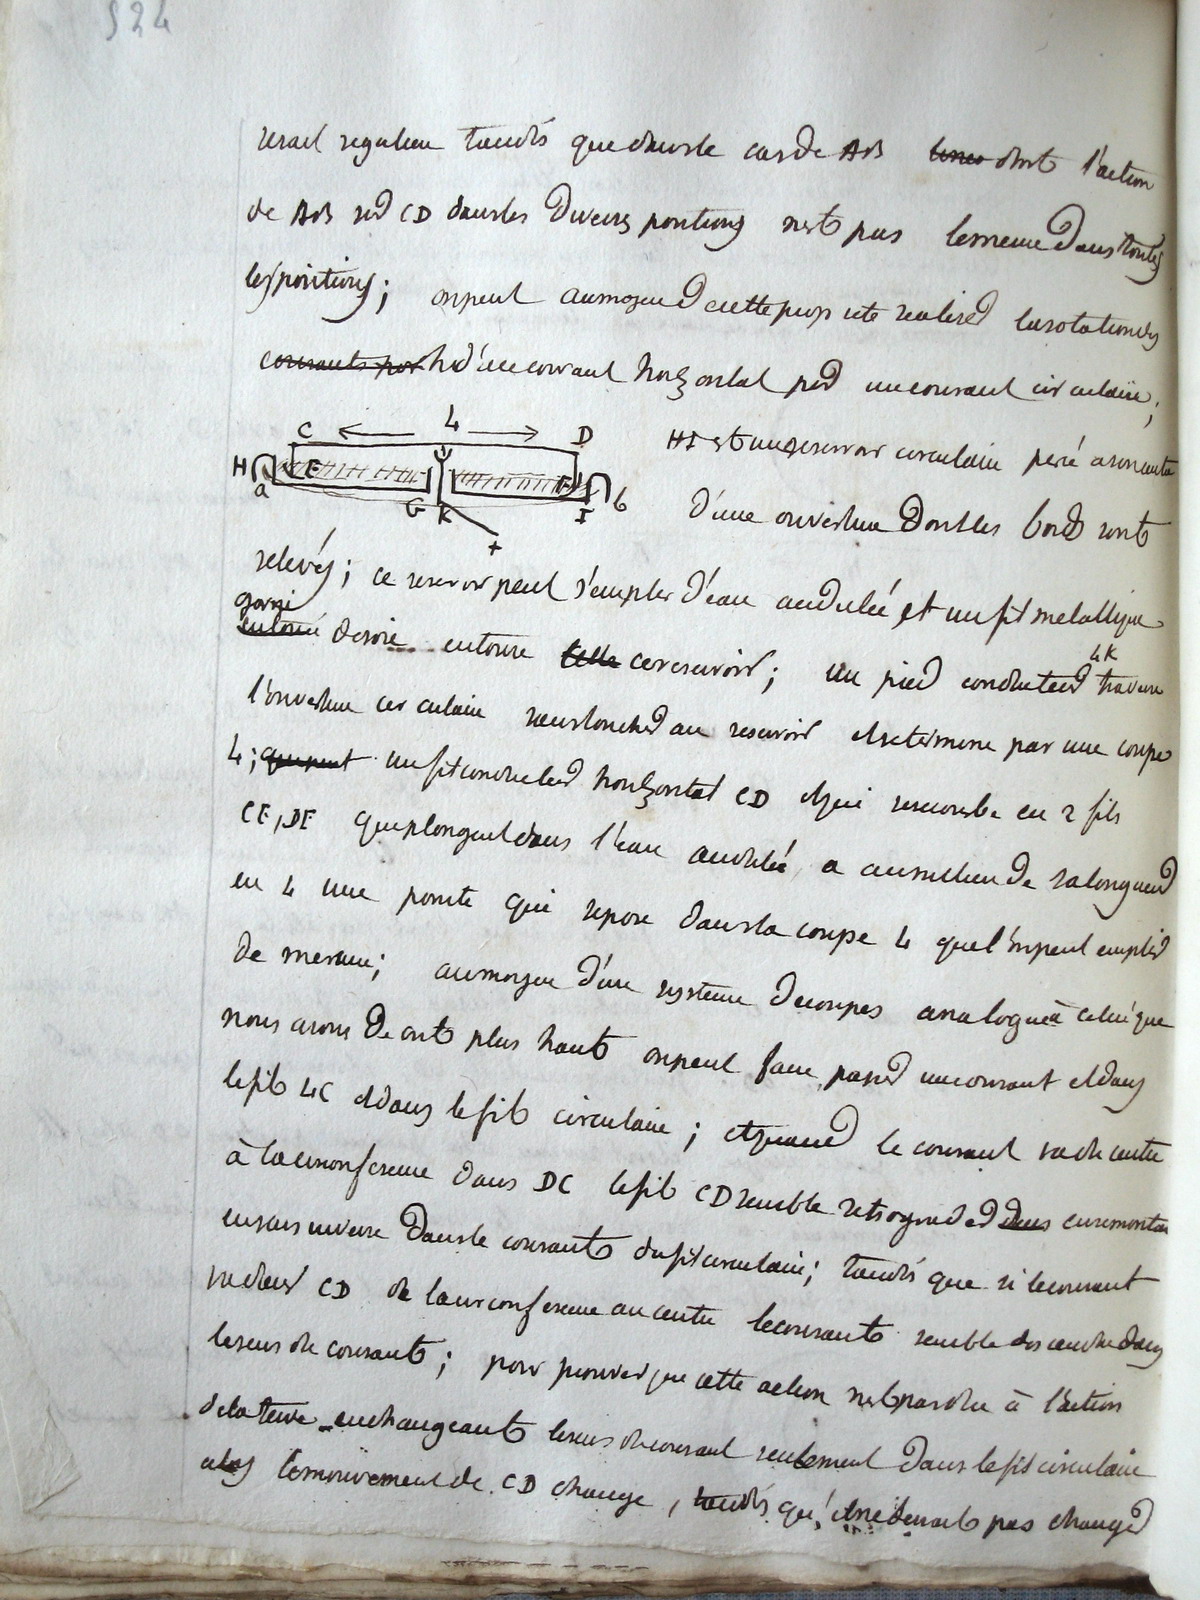 524
serait regulier tandis que dans le cas de AB doit l'action
de AB sur CD dans les diverses positions n'est pas la meme dans toutes
les positions; on peut au moyen de cette propriété realiser la rotation
courants par h d'un courant horizontal par un courant circulaire;
C 4 D
H E F
a G K I b
+
HI est un reservoir circulaire percé a son centre
d'une ouverture dont les bords sont
relevés; ce reservoir peut s'emplir d'eau acidulée et un fil metallique
garni
entouré de soie entoure celle ce reservoir; un pied conducteur traverse
4K
l'ouverture circulaire sans toucher au reservoir et se termine par une coupe
4; un fil conducteur horizontal CD et qui recourbe en 2 fils
CE, DF qui plongent dans l'eau acidulée a au milieu de sa longueur
en 4 une pointe qui repose dans la coupe 4 que l'on peut emplir
de mercure; au moyen d'un systeme de coupes analogue à celui que
nous avons decrit plus haut on peut faire passer un courant et dans
le fil 4C et dans le fil circulaire; et quand le courant va de centre
à la circonference dans DC le fil CD semble retrograder dans en remontant
en sens inverse dans le courant du fil circulaire; tandis que si le courant
va dans CD de la circonference au centre le courant semble descendre dans
le sens de courant; pour prouver que cette action n'est pas due à l'action
de la terre en changeant le sens de courant seulement dans le fil circulaire
alors le mouvement de CD change, tandis qu' devrait pas changer